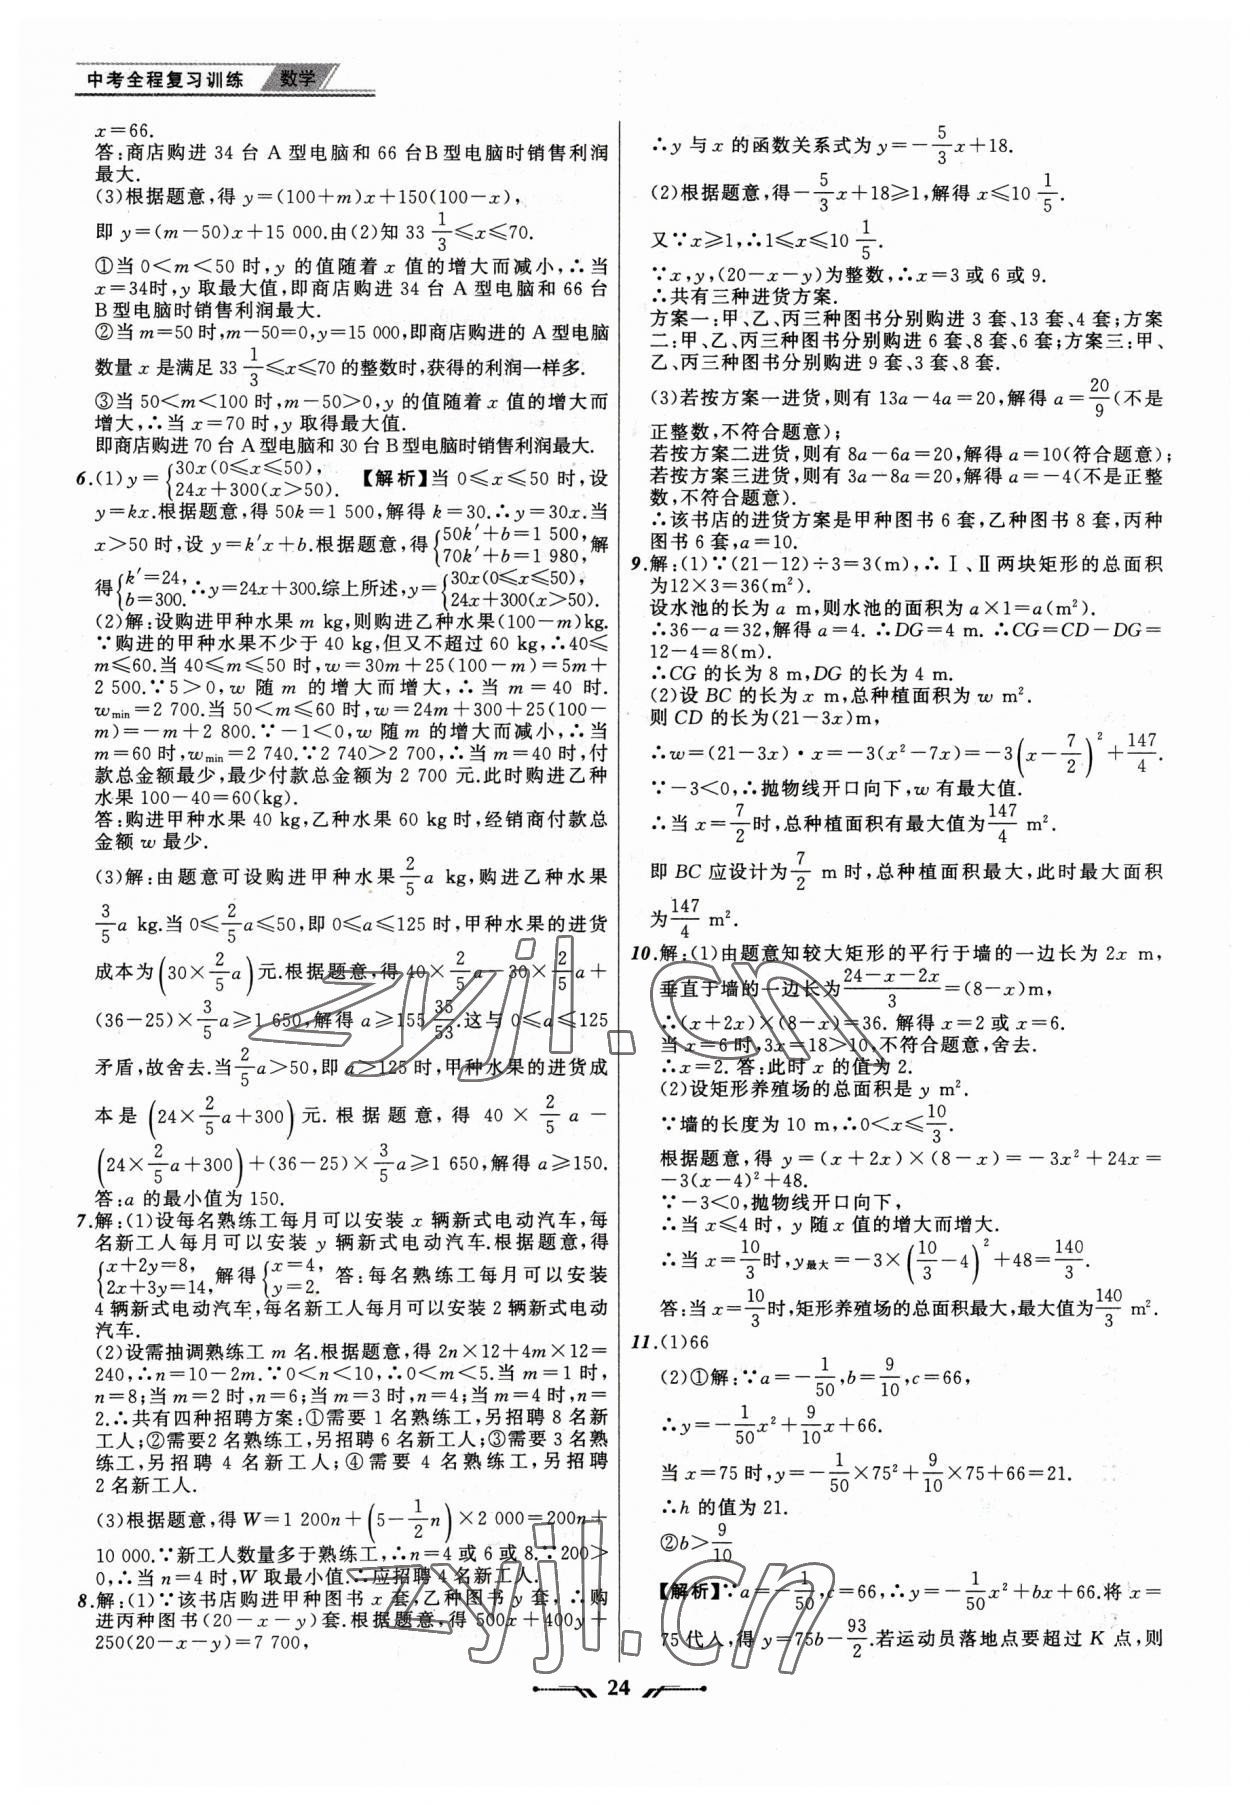 中考全程复习训练 数学
x=66.
答:商店购进 34 台 A 型电脑和 66 台B型电脑时销售利润
最大.
(3)根据题意,得 y=(100+m)x+150(100-x),
即 y=(m-50)x+15 000.由(2)知 33 1/3≤x≤70.
①当 0<m<50 时,y 的值随着 x 值的增大而减小,∴当
x=34时,y 取最大值,即商店购进 34 台 A 型电脑和 66 台
B型电脑时销售利润最大.
②当m=50时,m-50=0,y=15 000,即商店购进的A型电脑
数量 x 是满足 33 1/3≤x≤70 的整数时,获得的利润一样多.
③当 50<m<100 时,m-50>0,y 的值随着 x 值的增大而
增大,∴当 x=70 时,y 取得最大值.
即商店购进 70 台 A 型电脑和 30 台 B 型电脑时销售利润最大.
6.(1)y={30x(0≤x≤50), 24x+300(x>50). 【解析】当 0≤x≤50 时,设
y=kx.根据题意,得 50k=1 500,解得 k=30.∴y=30x.当
x>50 时,设 y=k′x+b.根据题意,得{50k′+b=1 500, 70k′+b=1 980, 解
得{k′=24, b=300. ∴y=24x+300.综上所述,y={30x(0≤x≤50), 24x+300(x>50).
(2)解:设购进甲种水果 m kg,则购进乙种水果(100-m)kg.
∵购进的甲种水果不少于 40 kg,但又不超过 60 kg,∴40≤
m≤60.当 40≤m≤50 时,w=30m+25(100-m)=5m+
2 500.∵5>0,w 随 m 的增大而增大,∴当 m=40 时.
wmin=2 700.当 50<m≤60 时,w=24m+300+25(100-
m)=-m+2 800.∵-1<0,w 随 m 的增大而减小,∴当
m=60 时,wmin=2 740.∵2 740>2 700,∴当 m=40 时,付
款总金额最少,最少付款总金额为 2 700 元.此时购进乙种
水果 100-40=60(kg).
答:购进甲种水果 40 kg,乙种水果 60 kg 时,经销商付款总
金额 w 最少.
(3)解:由题意可设购进甲种水果 2/5 a kg,购进乙种水果
3/5 a kg.当 0≤2/5 a≤50,即 0≤a≤125 时,甲种水果的进货
成本为(30×2/5 a)元.根据题意,得 40×2/5 a-30×2/5 a+
(36-25)×3/5 a≥1 650,解得 a≥155 35/53.这与 0≤a≤125
矛盾,故舍去.当 2/5 a>50,即 a>125 时,甲种水果的进货成
本是(24×2/5 a+300)元.根据题意,得 40×2/5 a-
(24×2/5 a+300)+(36-25)×3/5 a≥1 650,解得 a≥150.
答:a 的最小值为 150.
7.解:(1)设每名熟练工每月可以安装 x 辆新式电动汽车,每
名新工人每月可以安装 y 辆新式电动汽车.根据题意,得
{x+2y=8, 2x+3y=14, 解得{x=4, y=2. 答:每名熟练工每月可以安装
4 辆新式电动汽车,每名新工人每月可以安装 2 辆新式电动
汽车.
(2)设需抽调熟练工 m 名.根据题意,得 2n×12+4m×12=
240,∴n=10-2m.∵0<n<10,∴0<m<5.当 m=1 时,
n=8;当 m=2 时,n=6;当 m=3 时,n=4;当 m=4 时,n=
2.∴共有四种招聘方案:①需要 1 名熟练工,另招聘 8 名新
工人;②需要2 名熟练工,另招聘 6 名新工人;③需要 3 名熟
练工,另招聘 4 名新工人;④需要 4 名熟练工,另招聘
2 名新工人.
(3)根据题意,得 W=1 200n+(5-1/2 n)×2 000=200n+
10 000.∵新工人数量多于熟练工,∴n=4 或 6 或 8.∵200>
0,∴当 n=4 时,W 取最小值.∴应招聘 4 名新工人.
8.解:(1)∵该书店购进甲种图书 x 套,乙种图书 y 套,∴购
进丙种图书(20-x-y)套.根据题意,得 500x+400y+
250(20-x-y)=7 700,
∴y 与 x 的函数关系式为 y=-5/3 x+18.
(2)根据题意,得-5/3 x+18≥1,解得 x≤10 1/5.
又∵x≥1,∴1≤x≤10 1/5.
∵x,y,(20-x-y)为整数,∴x=3 或 6 或 9.
∴共有三种进货方案.
方案一:甲、乙、丙三种图书分别购进 3 套、13 套、4 套;方案
二:甲、乙、丙三种图书分别购进 6 套、8 套、6 套;方案三:甲、
乙、丙三种图书分别购进 9 套、3 套、8 套.
(3)若按方案一进货,则有 13a-4a=20,解得 a=20/9(不是
正整数,不符合题意);
若按方案二进货,则有 8a-6a=20,解得 a=10(符合题意);
若按方案三进货,则有 3a-8a=20,解得 a=-4(不是正整
数,不符合题意).
∴该书店的进货方案是甲种图书 6 套,乙种图书 8 套,丙种
图书 6 套,a=10.
9.解:(1)∵(21-12)÷3=3(m),∴Ⅰ、Ⅱ两块矩形的总面积
为12×3=36(m²).
设水池的长为 a m,则水池的面积为 a×1=a(m²).
∴36-a=32,解得 a=4.∴DG=4 m.∴CG=CD-DG=
12-4=8(m).
∴CG 的长为 8 m,DG 的长为 4 m.
(2)设 BC 的长为 x m,总种植面积为 w m².
则 CD 的长为(21-3x)m,
∴w=(21-3x)·x=-3(x²-7x)=-3(x-7/2)²+147/4.
∵-3<0,∴抛物线开口向下,w 有最大值.
∴当 x=7/2时,总种植面积有最大值为147/4 m².
即 BC 应设计为 7/2 m 时,总种植面积最大,此时最大面积
为147/4 m².
10.解:(1)由题意知较大矩形的平行于墙的一边长为 2x m,
垂直于墙的一边长为(24-x-2x)/3=(8-x)m,
∴(x+2x)×(8-x)=36. 解得 x=2 或 x=6.
当 x=6 时,3x=18>10,不符合题意,舍去.
∴x=2. 答:此时 x 的值为 2.
(2)设矩形养殖场的总面积是 y m².
∵墙的长度为 10 m,∴0<x≤10/3.
根据题意,得 y=(x+2x)×(8-x)=-3x²+24x=
-3(x-4)²+48.
∵-3<0,抛物线开口向下,
∴当 x≤4 时,y 随 x 值的增大而增大.
∴当 x=10/3时,y最大=-3×(10/3-4)²+48=140/3.
答:当 x=10/3时,矩形养殖场的总面积最大,最大值为140/3 m².
11.(1)66
(2)①解:∵a=-1/50,b=9/10,c=66,
∴y=-1/50 x²+9/10 x+66.
当 x=75 时,y=-1/50×75²+9/10×75+66=21.
∴h 的值为 21.
②b>9/10
【解析】∵a=-1/50,c=66,∴y=-1/50 x²+bx+66.将 x=
75代入,得 y=75b-93/2.若运动员落地点要超过 K 点,则
24
zyjl.cn
zyjl.cn